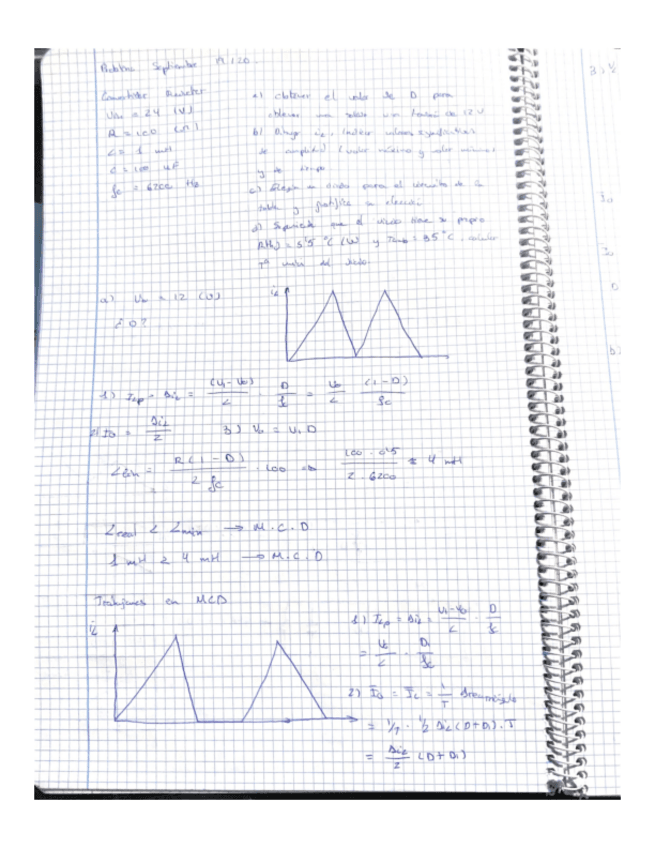 Problema Septiembre 19/20.
Convertidor Reductor
Uin = 24 (V)
R = 100 (Ω)
L = 1 mH
C = 100 uF
fc = 6200 Hz
a) Obtener el valor de D para
obtener una salida un tensión de 12 V
b) Dibuje iL, indicar valores
de amplitud (valor máximo y valor mínimo)
y de tiempo
c) Elegir un diodo para el circuito de la
tabla y justifica su elección
d) Suponiendo que el diodo tiene su propio
= 5'5 °C (W) y Tamb = 35 °C, calcular
Tª del diodo.
a) Uo = 12 (V)
¿ D?
iL
1) ILp = ΔiL = (U1 - Uo) / L · D / fc = Uo / L · (1 - D) / fc
2) Io = ΔiL / 2 3) Uo = U1 D
Lmin = R (1 - D) / 2 fc · 100 => 100 · 0'5 / 2 · 6200 ≈ 4 mH
Lreal < Lmin → M.C.D
1 mH < 4 mH → M.C.D
Trabajamos en MCD
iL
1) ILp = ΔiL = U1 - Uo / L · D / fc
= Uo / L · D1 / fc
2) Io = IL = 1 / T Área triángulo
= 1/T · 1/2 ΔiL (D + D1) · T
= ΔiL / 2 (D + D1)
3) 1/
Io
Io
b)